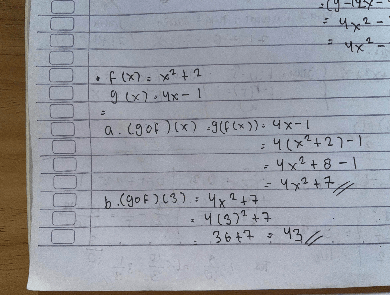 = (y-(4x-
= 4x² -
= 4x² -
• f(x) = x² + 2
g(x) = 4x - 1
=
a. (gof)(x) = g(f(x)) = 4x - 1
= 4(x²+2) - 1
= 4x² + 8 - 1
= 4x² + 7 //
b. (gof)(3) = 4x² + 7
= 4(3)² + 7
36 + 7 = 43 //